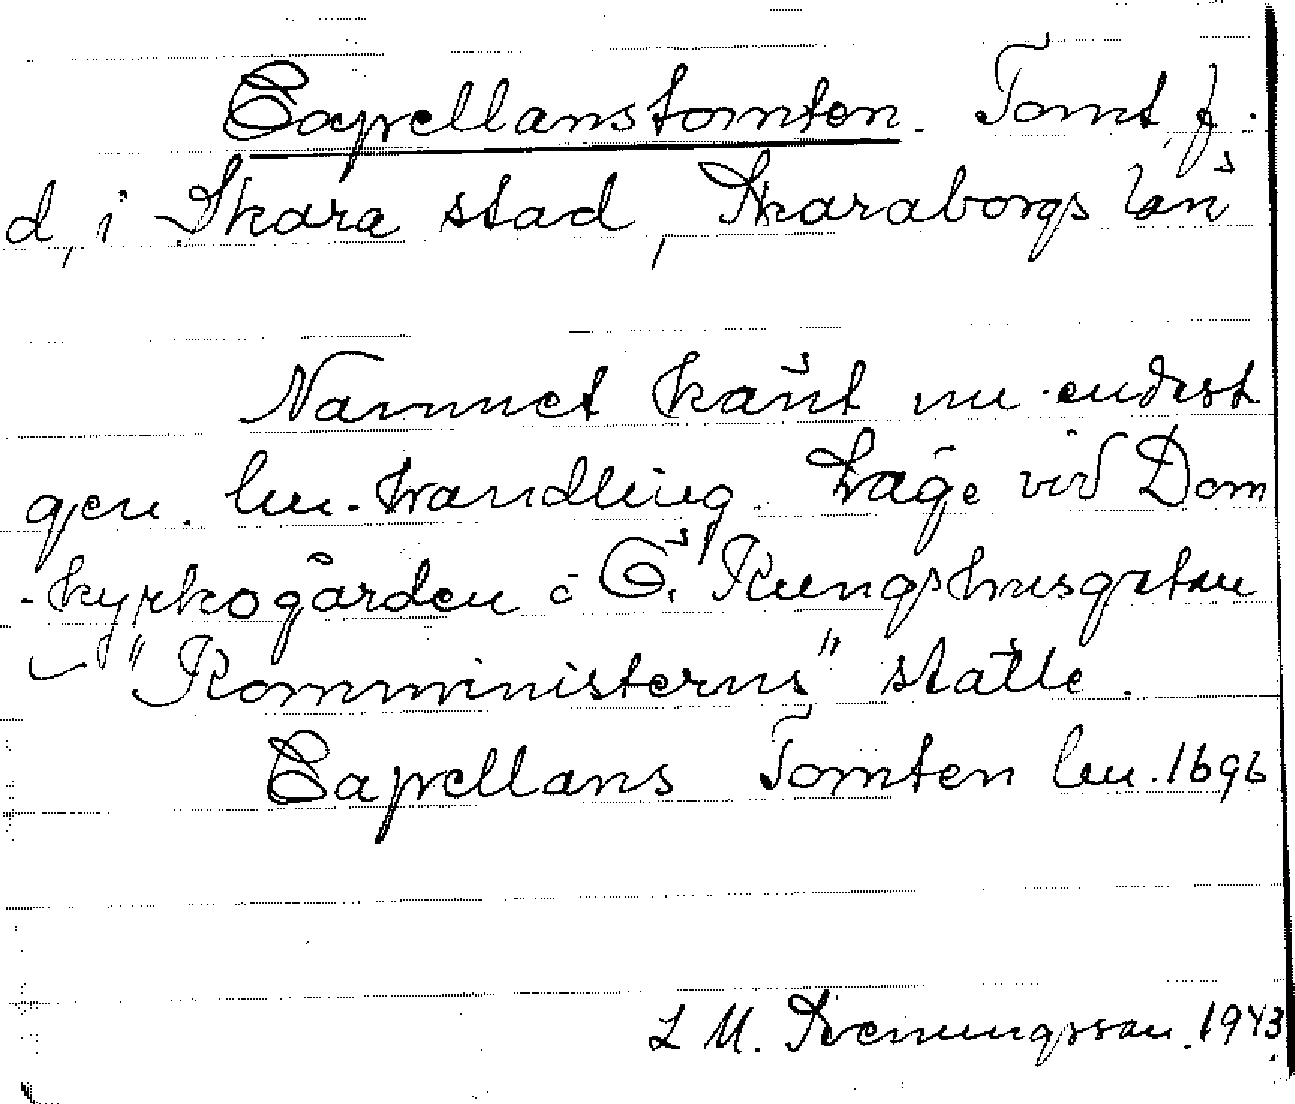 Capellanstomten. Tomt, f.
d, i Skara stad, Skaraborgs län
Namnet känt nu endast
gen. lm. handling. Läge vid Dom
-kyrkogården o Ö. Kungshusgatan
- "Komministerns" ställe.
Capellans Tomten lm. 1696
L M. Svenungsson. 1943